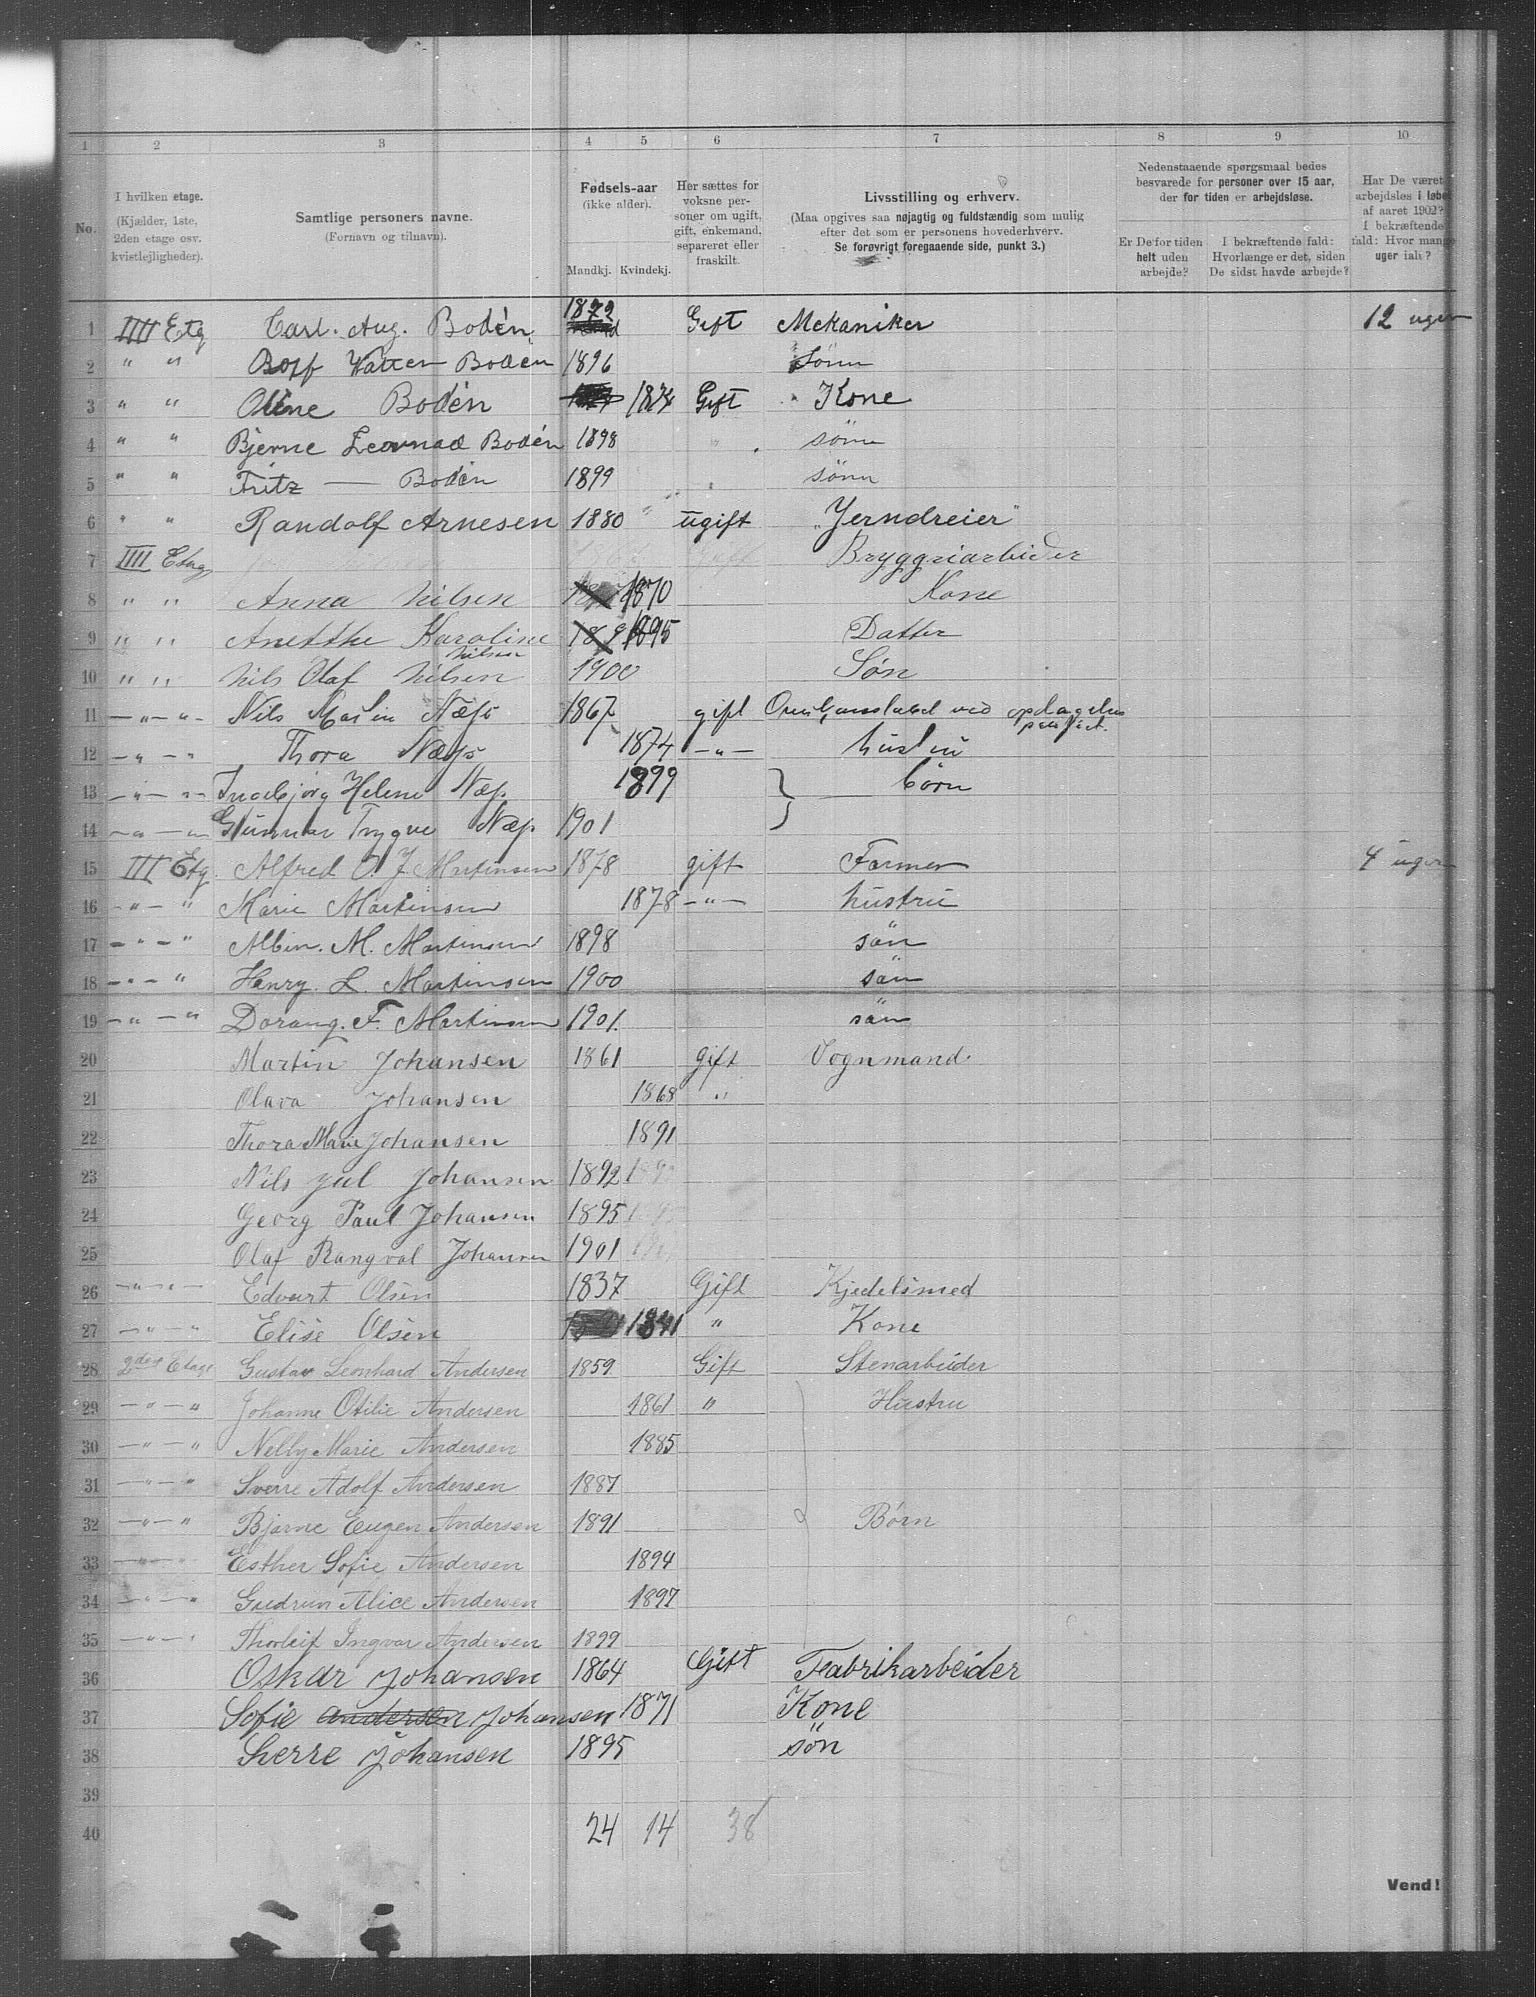 1 2 3 4 5 6 7 8 9 10
No.
I hvilken etage.
(Kjælder, 1ste,
2den etage osv.
kvistlejligheder).
Samtlige personers navne.
(Fornavn og tilnavn).
Fødsels-aar
(ikke alder).
Mandkj. Kvindekj.
Her sættes for
voksne per-
soner om ugift,
gift, enkemand,
separeret eller
fraskilt.
Livsstilling og erhverv.
(Maa opgives saa nøjagtig og fuldstændig som mulig
efter det som er personens hovederhverv.
Se forøvrigt foregaaende side, punkt 3.)
Nedenstaaende spørgsmaal bedes
besvarede for personer over 15 aar,
der for tiden er arbejdsløse.
Er De for tiden
helt uden
arbejde?
I bekræftende fald:
Hvorlænge er det, siden
De sidst havde arbejde?
Har De været
arbejdsløs i løbet
af aaret 1902?
I bekræftende
fald: Hvor mange
uger ialt?
1 IIII Etg Carl. Aug. Bodén 1872 Gift Mekaniker 12 uger
2 " " Walter Bodén 1896 Sönn
3 " " Oline Bodén 1874 Gift Kone
4 " " Bjerne Leornad Bodén 1898 sönn
5 " " Fritz — Bodén 1899 sönn
6 " " Randolf Arnesen 1880 " ugift "Jerndreier"
7 IIII Etag Bryggriarbider
8 " " Anna Nilsen 1870 Kone
9 " " Anetthe Karoline 1895 Datter
Nilsen
10 " " Nils Olaf Nilsen 1900 Søn
11 — " — " — Nils Næss 1867 gift ved
12 — " — " Thora Næss 1874 — " — hustru
13 — " — " — Ingebjørg Helene Næss 1899 } börn
14 — " — " Gunnar Trygve Næss 1901
15 III Etg. Alfred O J Martinsen 1878 gift Formen 4 uger
16 — " — " Marie Martinsen 1878 — " — hustru
17 — " — " Albin. M. Martinsen 1898 sön
18 — " — " Henry. L. Martinsen 1900 sön
19 — " — " F. Martinsen 1901. sön
20 Martin Johansen 1861 gift Vognmand
21 Olava Johansen 1868 "
22 Thora Marie Johansen 1891
23 Nils Johansen 1892
24 Georg Paul Johansen 1895
25 Olaf Rangval Johansen 1901
26 — " — " — Edvart Olsen 1837 Gift Kjedelsmed
27 — " — " Elise Olsen 1841 " Kone
28 2den Etage Gustav Leonhard Andersen 1859 Gift Stenarbeider
29 — " — " Johanne Otilie Andersen 1861 " Hustru
30 — " — " Nelly Marie Andersen 1885
31 — " — " Sverre Adolf Andersen 1887
32 — " — " Bjarne Eugen Andersen 1891 Børn
33 — " — " Esther Sofie Andersen 1894
34 — " — " Gudrun Alice Andersen 1897
35 — " — " Thorleif Ingvar Andersen 1899
36 Oskar Johansen 1864 Gift Fabrikarbeider
37 Sofie Andersen Johansen 1871 Kone
38 Sverre Johansen 1895 sön
39
40 24 14 38
Vend!